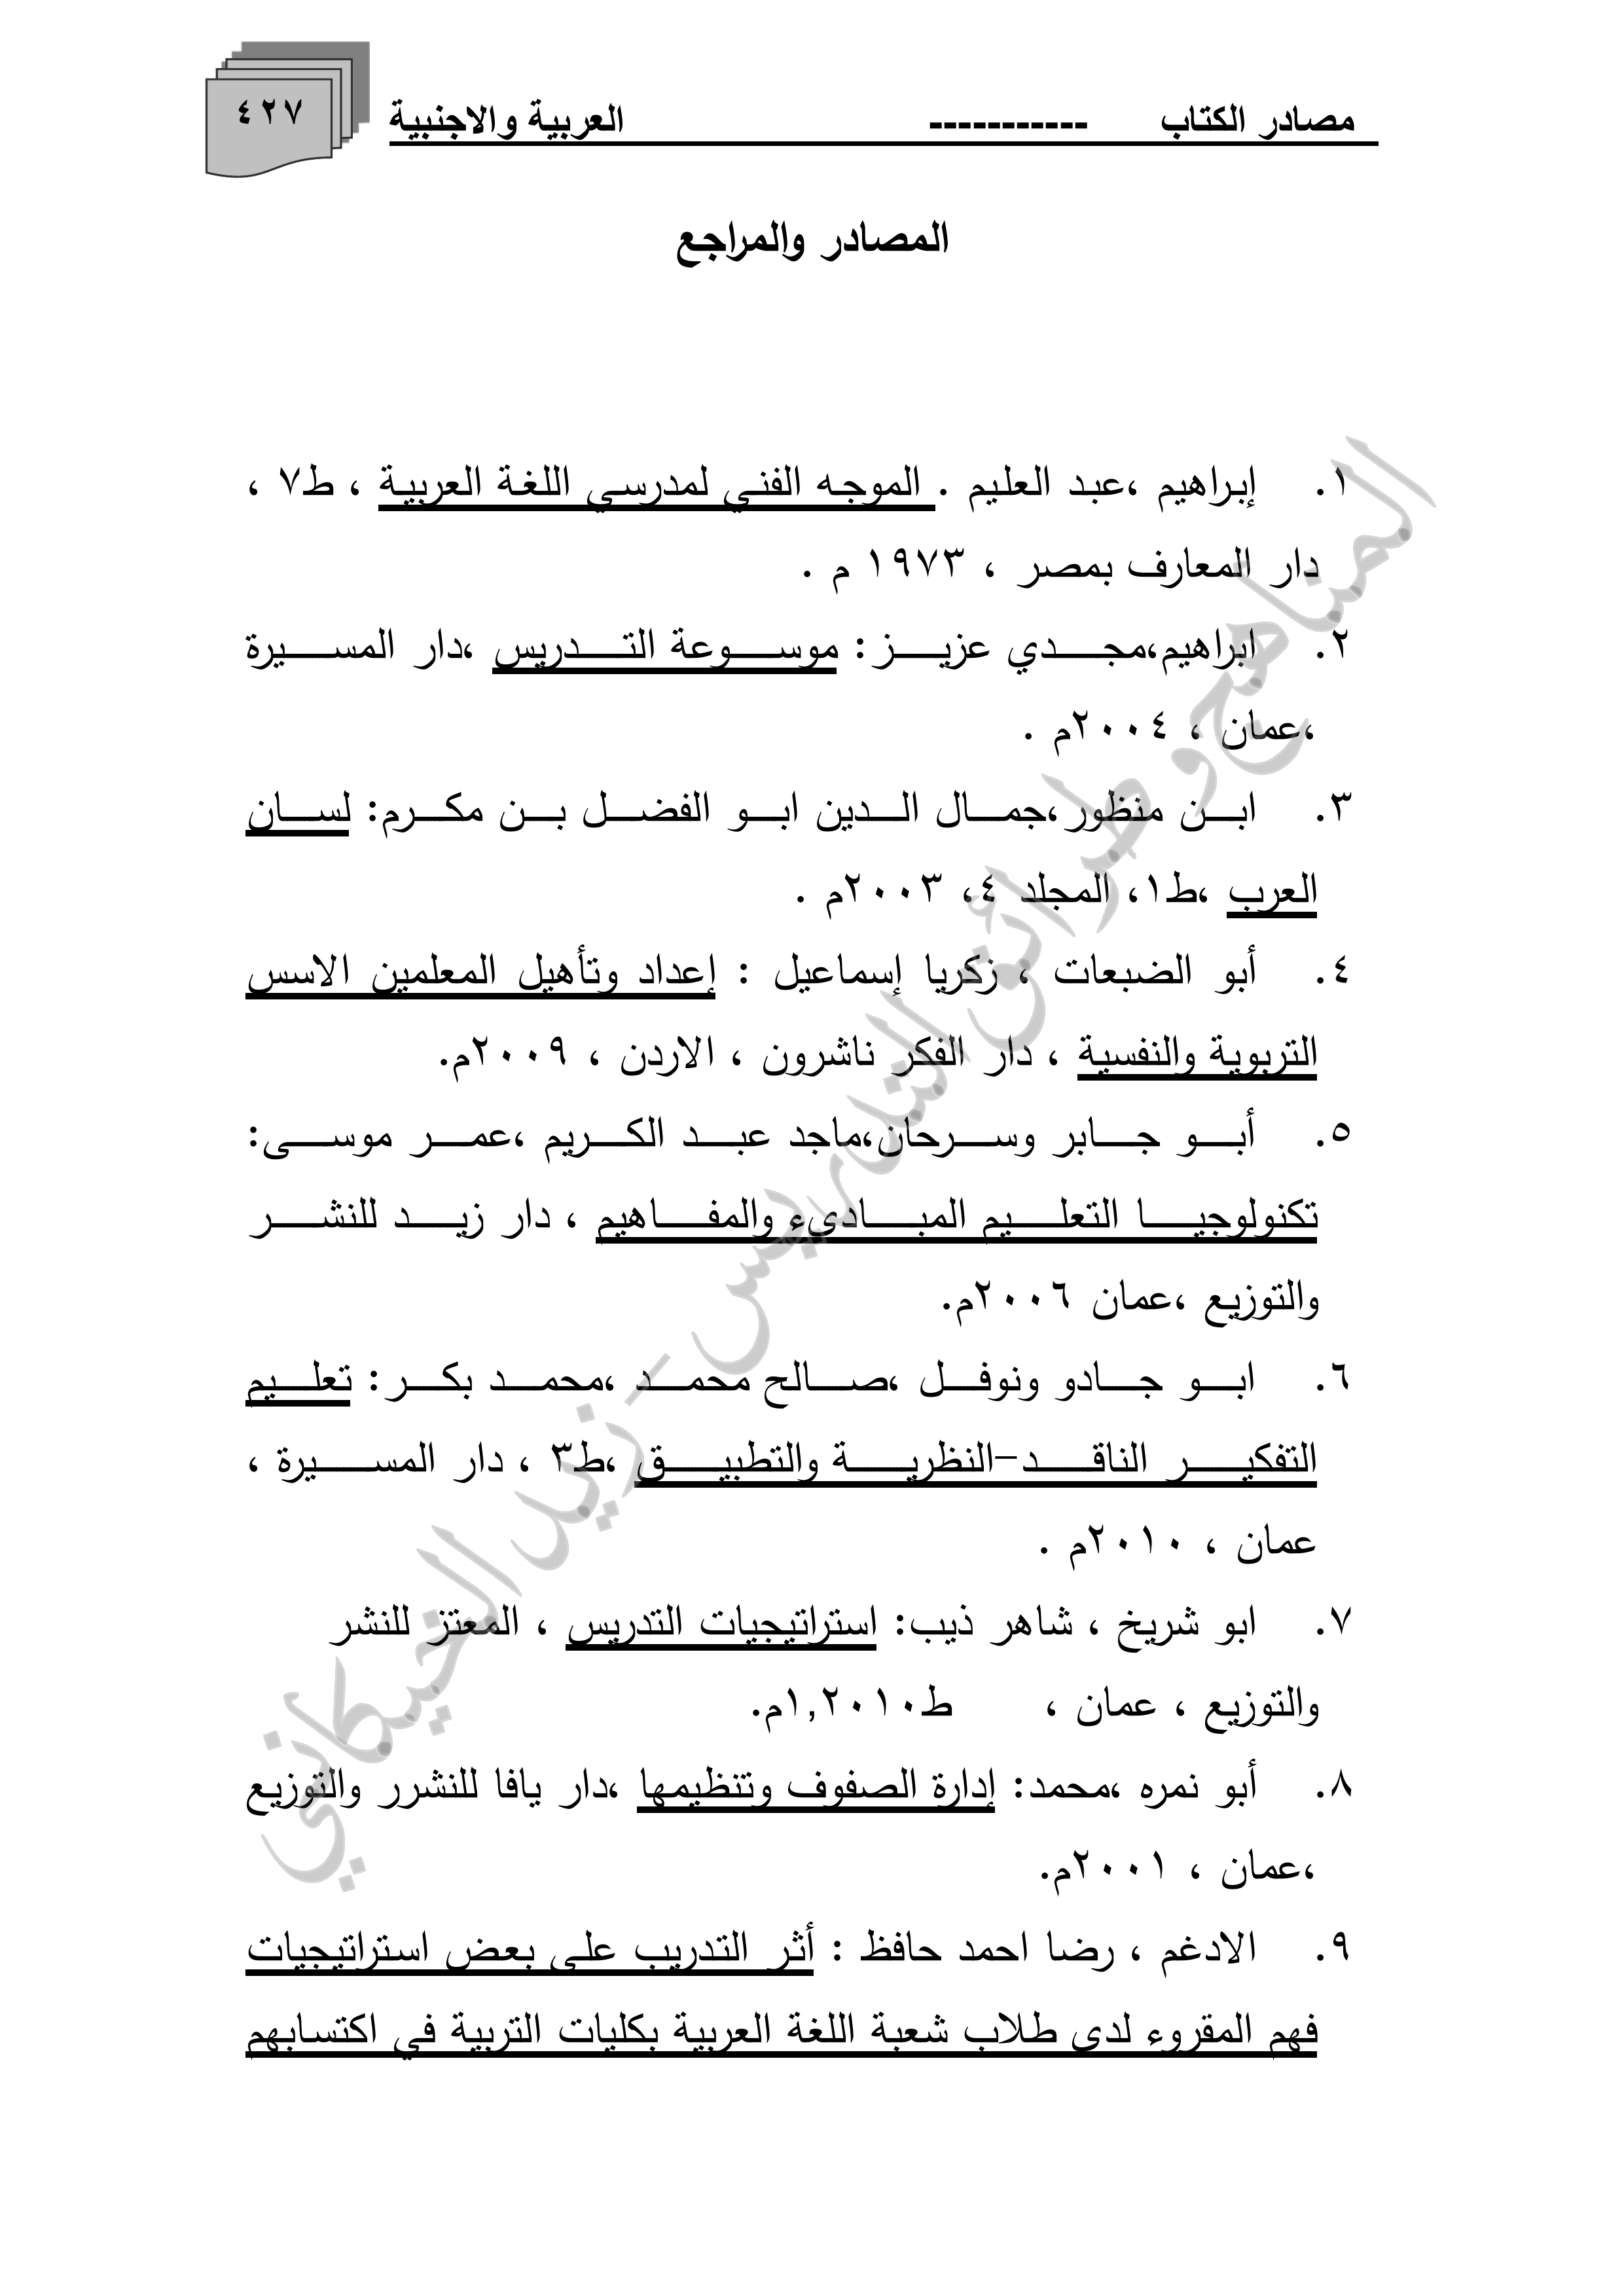 مصادر الكتاب ----------- العربية والاجنبية ٤٢٧
المصادر والمراجع
١. إبراهيم ،عبد العليم . الموجه الفني لمدرسي اللغة العربية ، ط٧ ،
دار المعارف بمصر ، ١٩٧٣ م .
٢. ابراهيم،مجدي عزيز: موسوعة التدريس ،دار المسيرة
،عمان ، ٢٠٠٤م .
٣. ابن منظور،جمال الدين ابو الفضل بن مكرم: لسان
العرب ،ط١، المجلد ٤، ٢٠٠٣م .
٤. أبو الضبعات ، زكريا إسماعيل : إعداد وتأهيل المعلمين الاسس
التربوية والنفسية ، دار الفكر ناشرون ، الاردن ، ٢٠٠٩م.
٥. أبو جابر وسرحان،ماجد عبد الكريم ،عمر موسى:
تكنولوجيا التعليم المبادىء والمفاهيم ، دار زيد للنشر
والتوزيع ،عمان ٢٠٠٦م.
٦. ابو جادو ونوفل ،صالح محمد ،محمد بكر: تعليم
التفكير الناقد–النظرية والتطبيق ،ط٣ ، دار المسيرة ،
عمان ، ٢٠١٠م .
٧. ابو شريخ ، شاهر ذيب: استراتيجيات التدريس ، المعتز للنشر
والتوزيع ، عمان ، ط١,٢٠١٠م.
٨. أبو نمره ،محمد: إدارة الصفوف وتنظيمها ،دار يافا للنشرر والتوزيع
،عمان ، ٢٠٠١م.
٩. الادغم ، رضا احمد حافظ : أثر التدريب على بعض استراتيجيات
فهم المقروء لدى طلاب شعبة اللغة العربية بكليات التربية في اكتسابهم
المناهج و طرائق التدريس - زيد الخيكاني